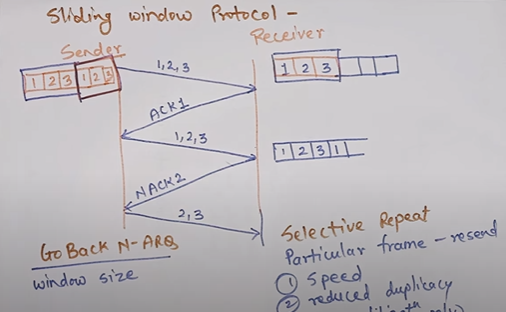 Sliding window Protocol -
Sender
Receiver
1 2 3 1 2 3
1,2,3
1 2 3
ACK1
1,2,3
1 2 3 1
NACK2
2,3
GoBack N-ARQ
window size
Selective Repeat
Particular frame - resend
① Speed
② reduced duplicacy